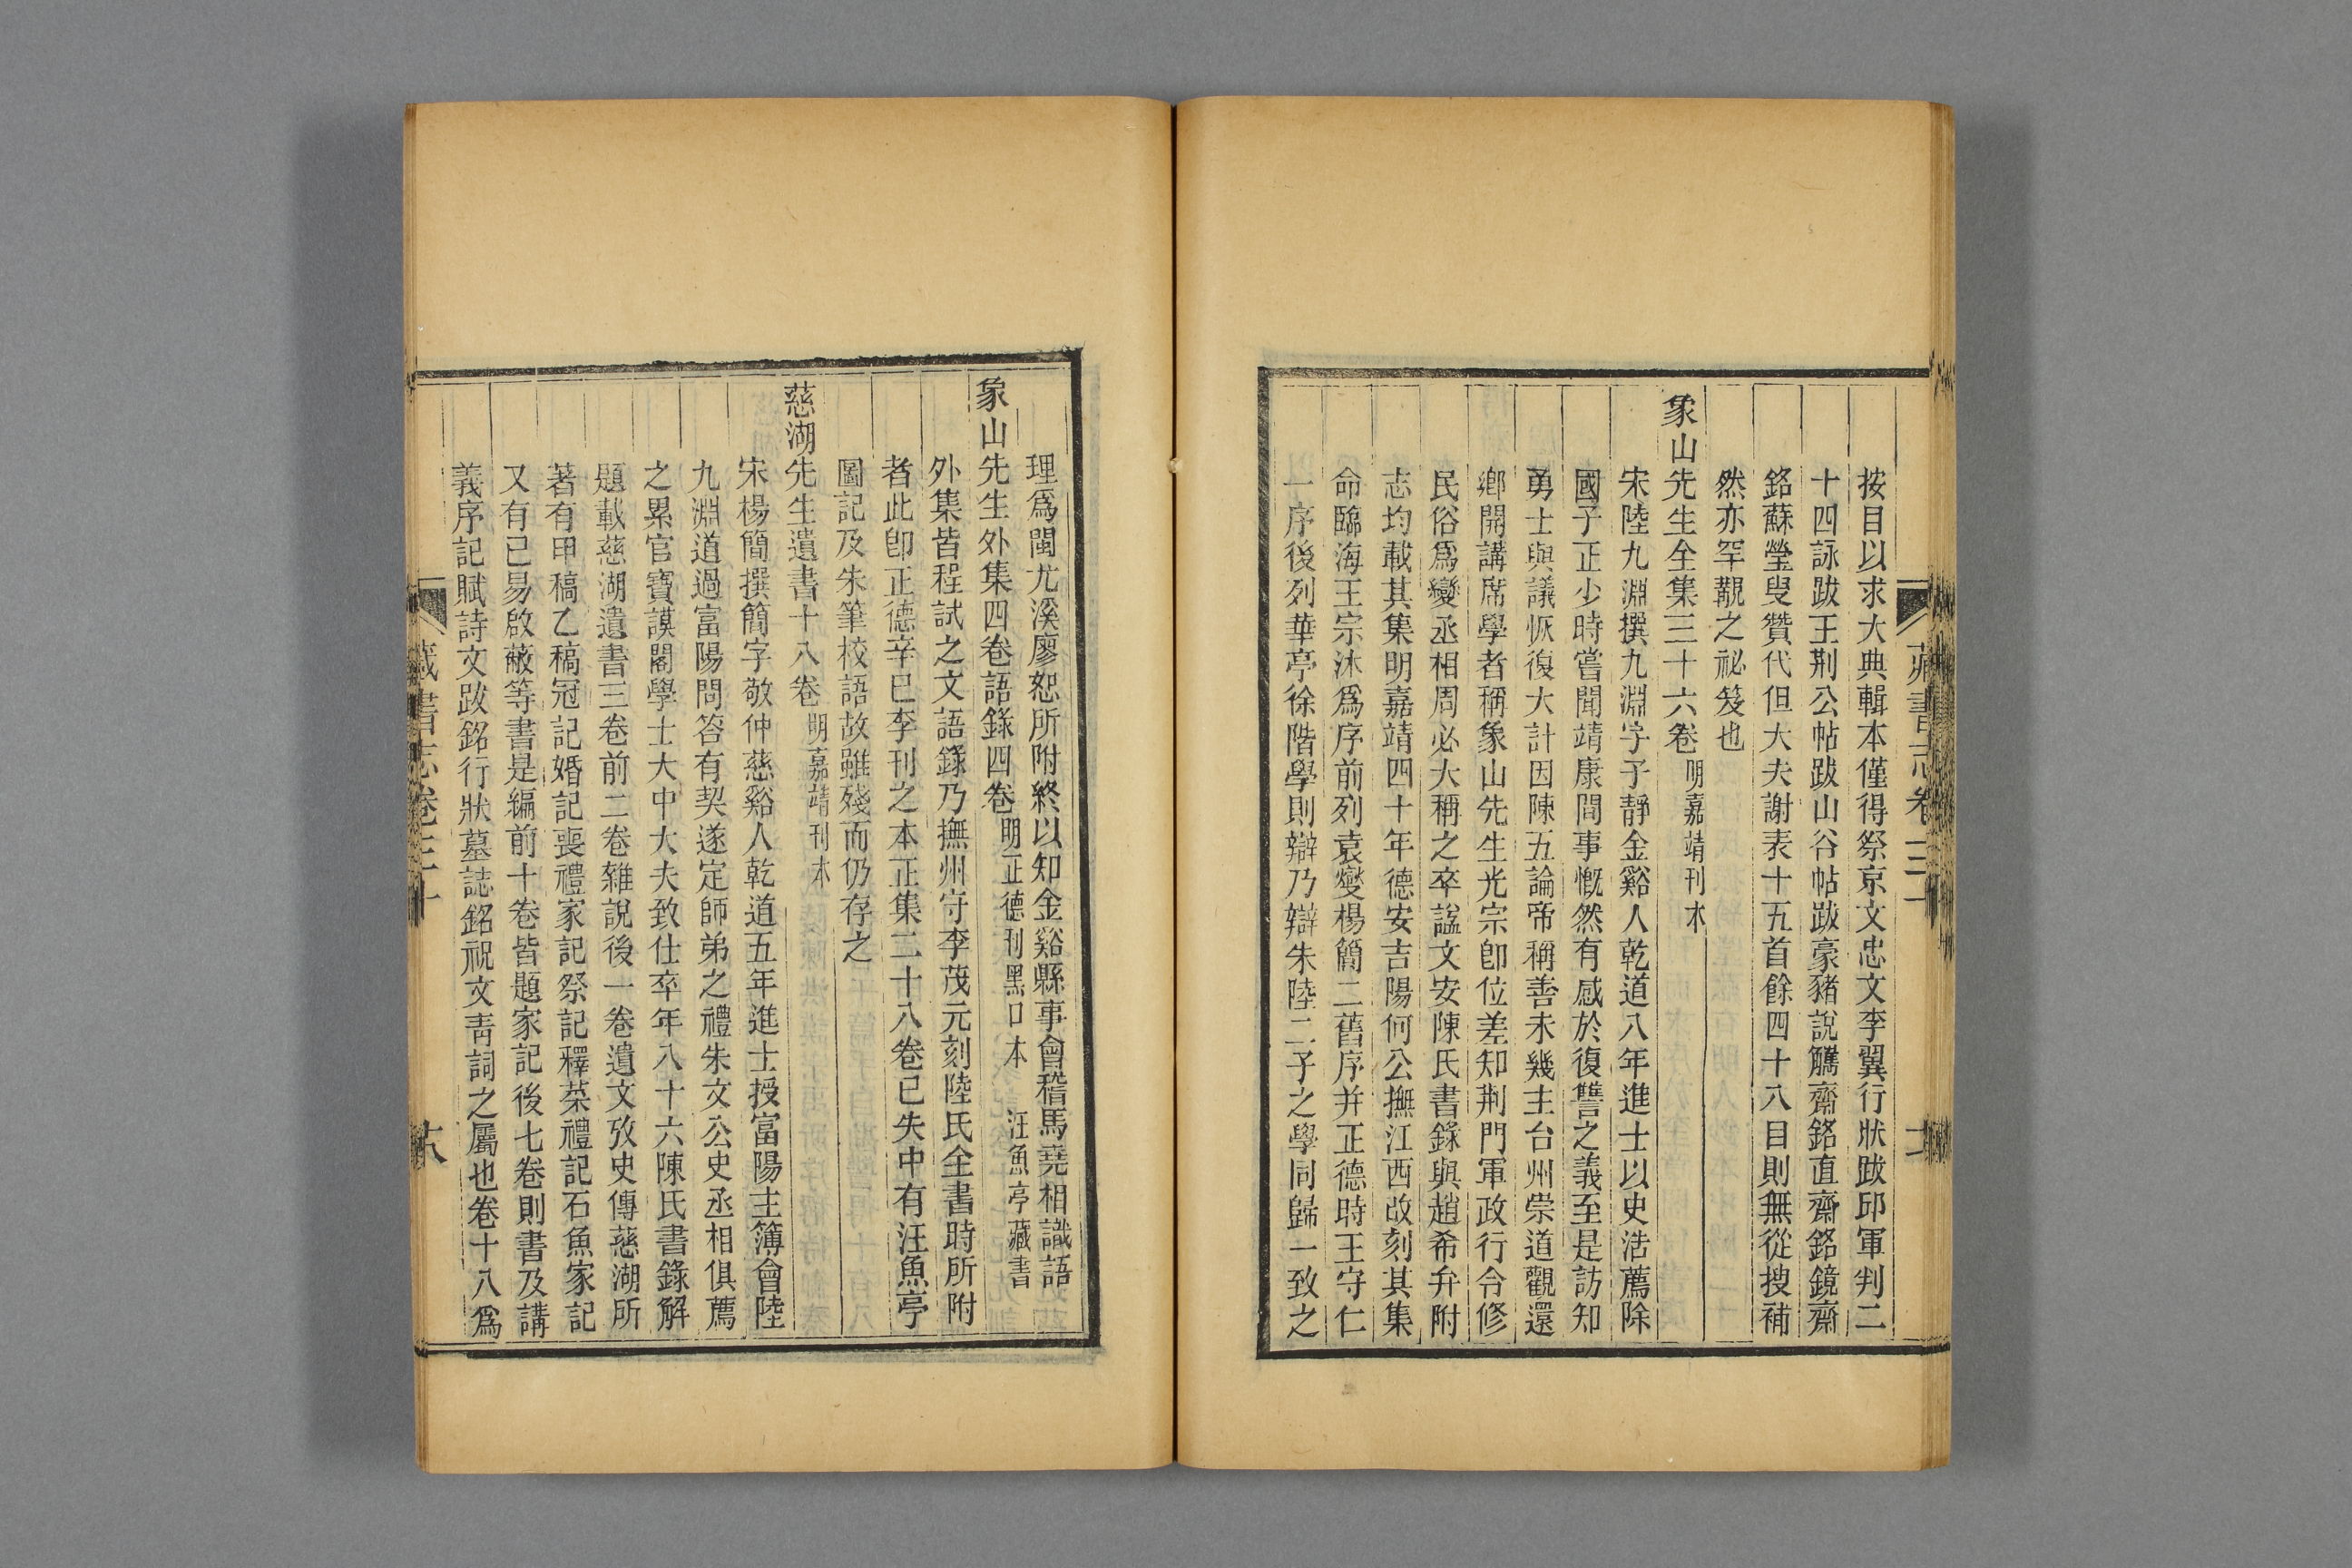 按目以求大典輯本僅得祭京文忠文李翼行狀跋邱軍判二
十四詠跋王荆公帖跋山谷帖跋豪豬說觿齋銘直齋銘鏡齋
銘蘇瑩叟贊代但大夫謝表十五首餘四十八目則無從搜補
然亦罕覯之祕笈也
象山先生全集三十六卷 明嘉靖刊本
宋陸九淵撰九淵字子靜金谿人乾道八年進士以史浩薦除
國子正少時嘗聞靖康間事慨然有感於復讐之義至是訪知
勇士與議恢復大計因陳五論帝稱善未幾主台州崇道觀還
鄉開講席學者稱象山先生光宗卽位差知荆門軍政行令修
民俗爲變丞相周必大稱之卒諡文安陳氏書錄與趙希弁附
志均載其集明嘉靖四十年德安吉陽何公撫江西改刻其集
命臨海王宗沐爲序前列袁燮楊簡二舊序并正德時王守仁
一序後列華亭徐階學則辯乃辯朱陸二子之學同歸一致之
藏書志卷三十
理爲閩尤溪廖恕所附終以知金谿縣事會稽馬堯相識語
象山先生外集四卷語錄四卷 明正德刊黑口本 汪魚亭藏書
外集皆程試之文語錄乃撫州守李茂元刻陸氏全書時所附
者此卽正德辛巳李刊之本正集二十八卷已失中有汪魚亭
圖記及朱筆校語故雖殘而仍存之
慈湖先生遺書十八卷 明嘉靖刊本
宋楊簡撰簡字敬仲慈谿人乾道五年進士授富陽主簿會陸
九淵道過富陽問答有契遂定師弟之禮朱文公史丞相俱薦
之累官寶謨閣學士大中大夫致仕卒年八十六陳氏書錄解
題載慈湖遺書三卷前二卷雜說後一卷遺文攷史傳慈湖所
著有甲稿乙稿冠記婚記喪禮家記祭記釋菜禮記石魚家記
又有已易啟蔽等書是編前十卷皆題家記後七卷則書及講
義序記賦詩文跋銘行狀墓誌銘祝文靑詞之屬也卷十八爲
藏書志卷三十